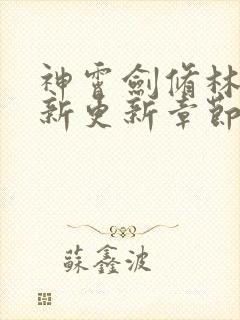 神雷劍脩林
新更新章節
蘇鑫波